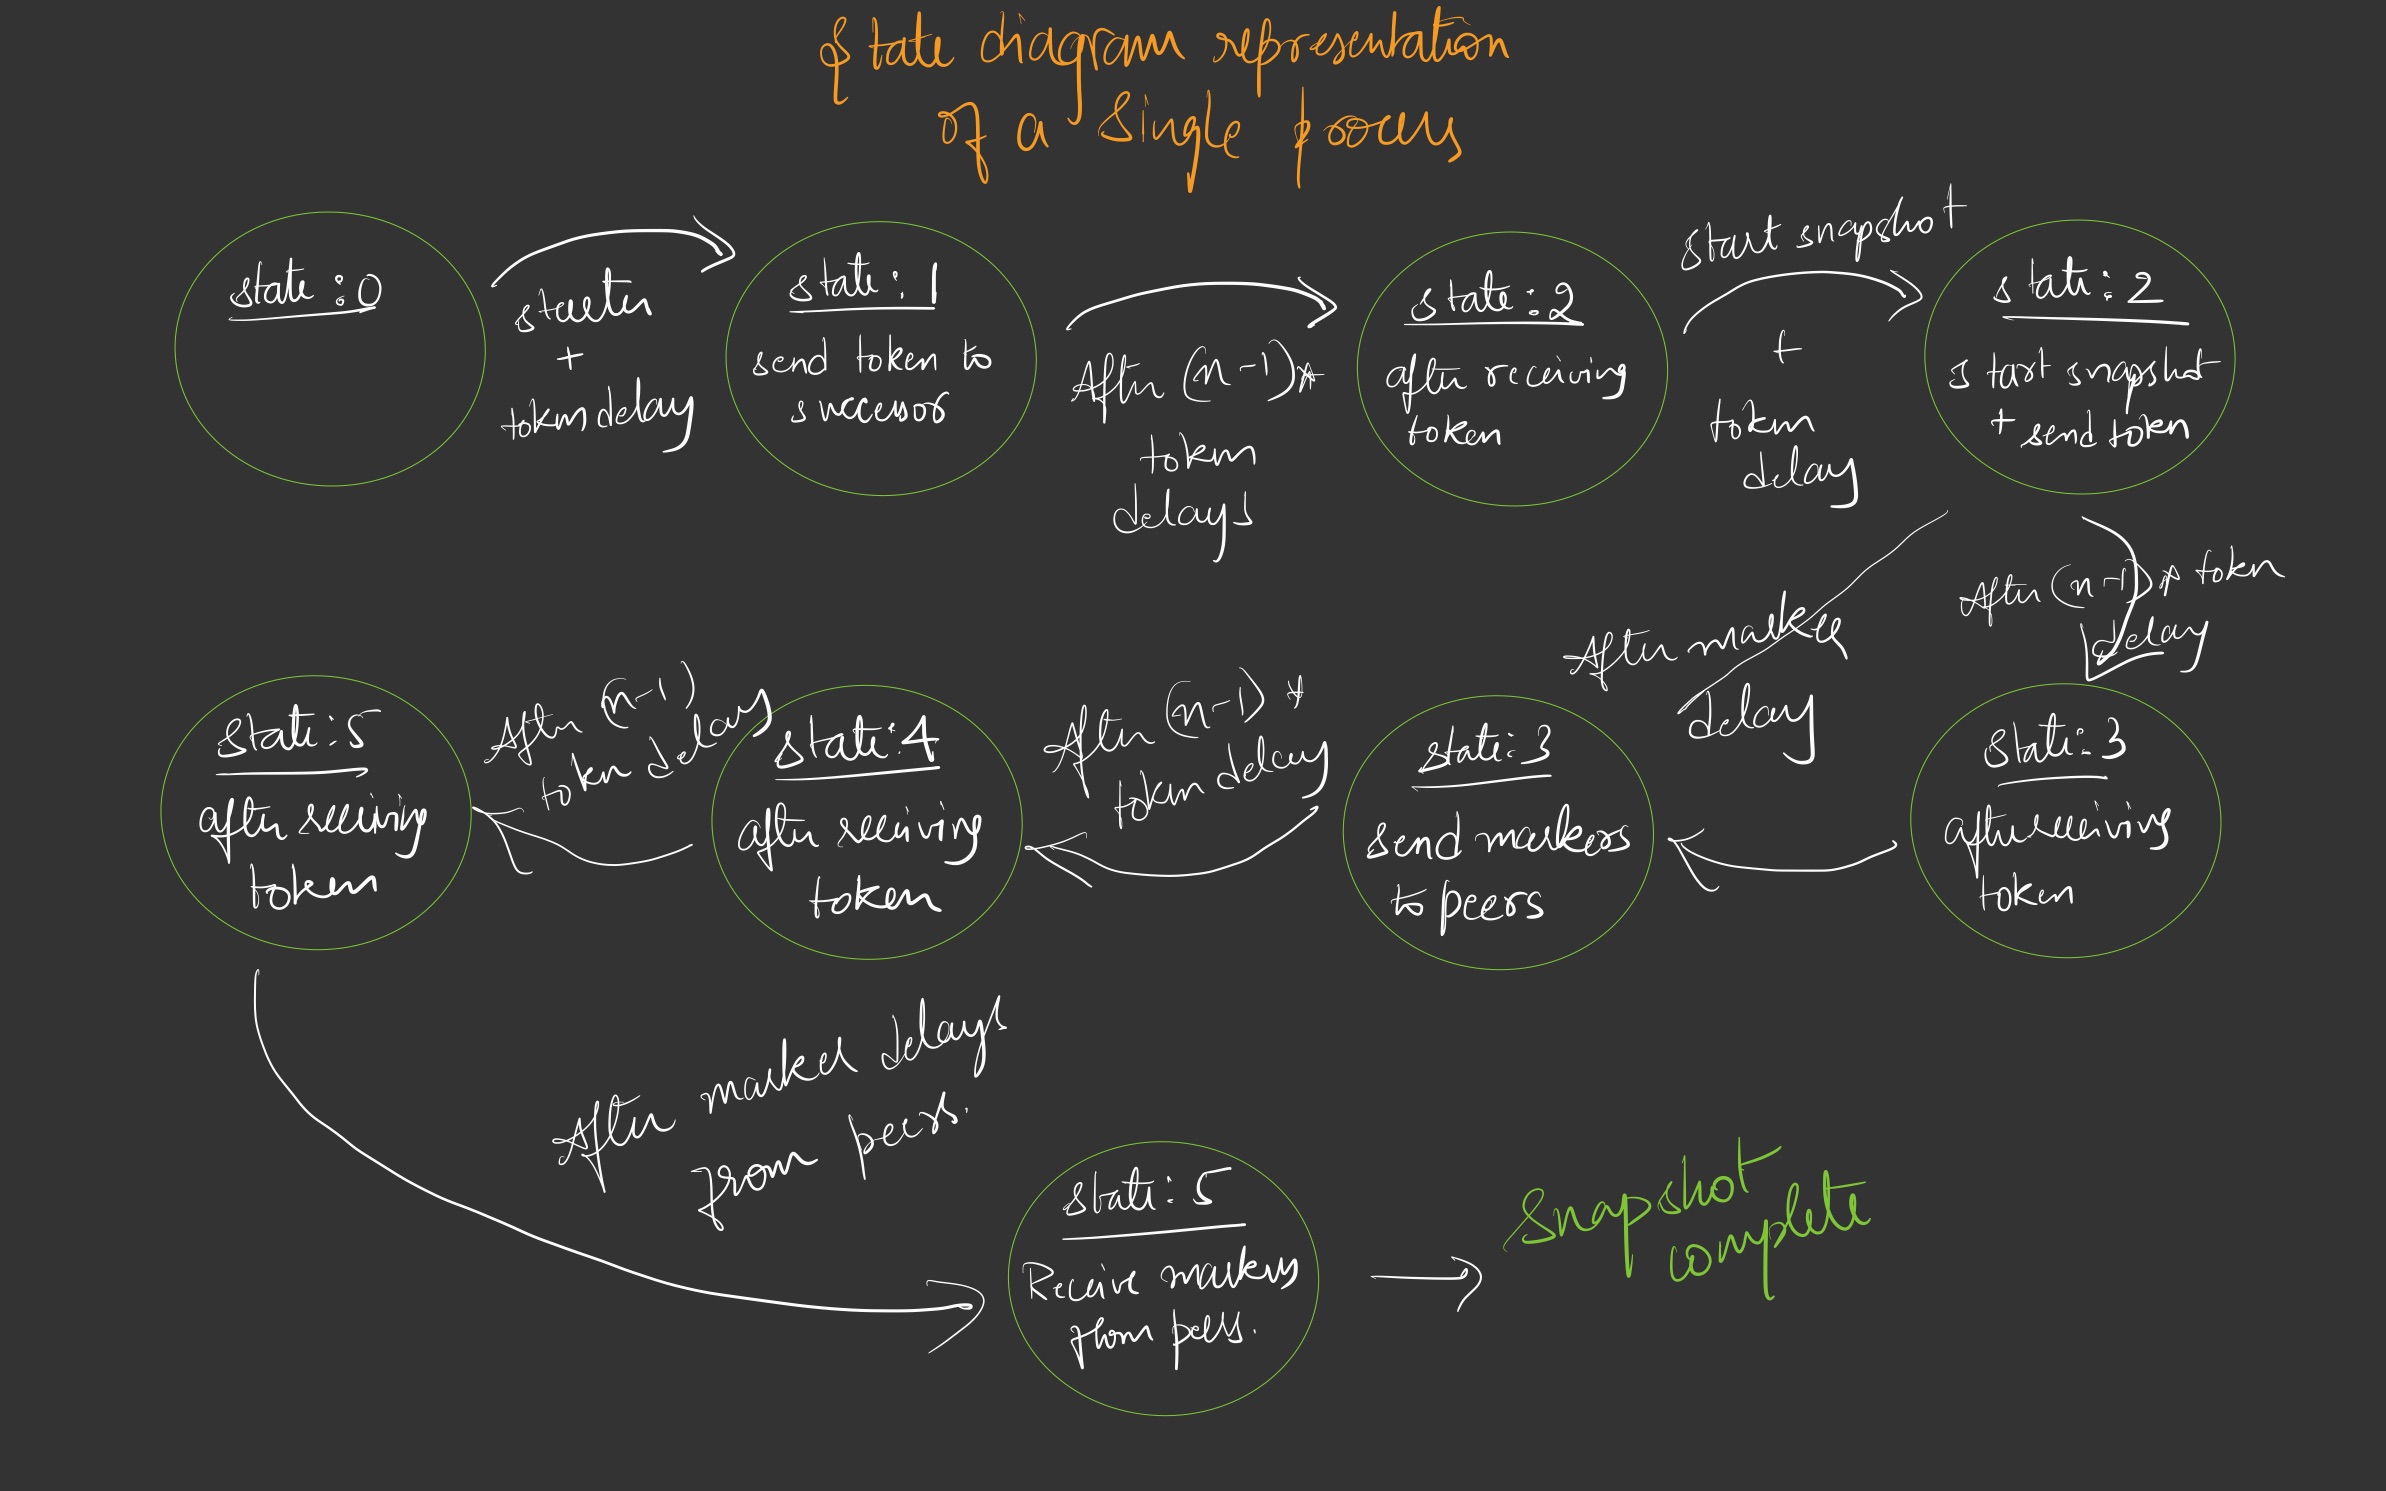 State diagram representation
of a single process
state : 0
starter
+
token delay
state : 1
send token to
successor
After (n-1) *
token
delays
state : 2
after receiving
token
start snapshot
+
token
delay
state : 2
start snapshot
+ send token
After (n-1) * token
delay
After marker
delay
state : 3
after receiving
token
state : 3
send markers
to peers
After (n-1) *
token delay
state : 4
after receiving
token
After (n-1)
token delay
state : 5
after receiving
token
After marker delays
from peers.
state : 5
Receive markers
from peers.
Snapshot
complete